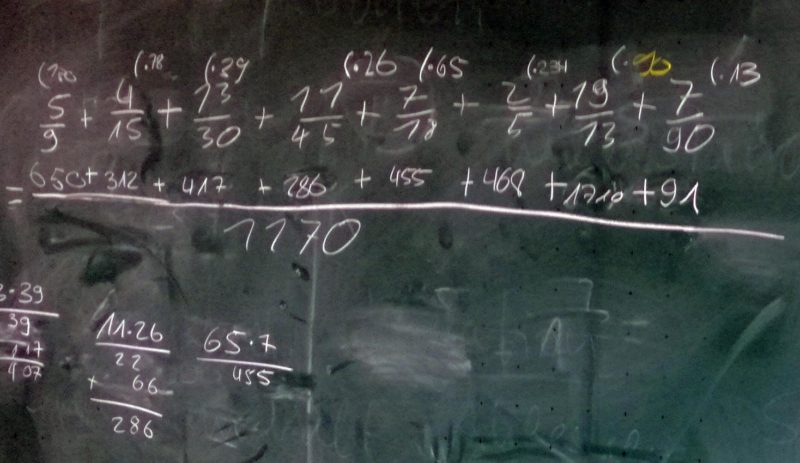 (·78 (·39 (·26 (·65 (·234 (·90 (·13
5/9 + 4/15 + 13/30 + 11/45 + 7/18 + 2/5 + 19/13 + 7/90
= 650 + 312 + 417 + 286 + 455 + 468 + 1710 + 91
1170
3·39
39
117
407
11·26
22
+ 66
286
65·7
455